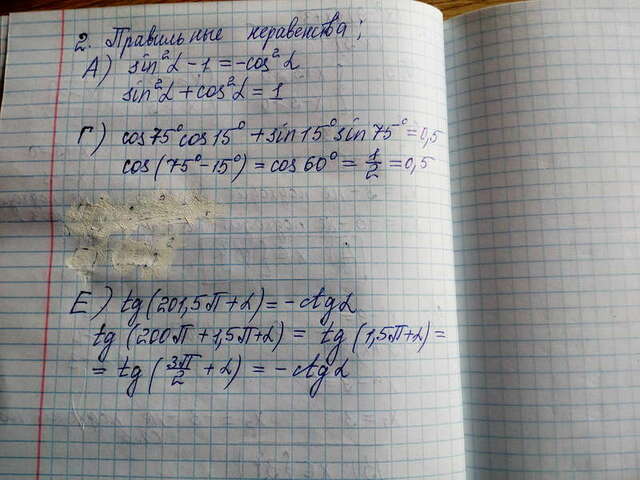 2. Правильные неравенства;
А) sin²α - 1 = -cos²α
sin²α + cos²α = 1
Г) cos75° cos15° + sin15° sin75° = 0,5
cos(75° - 15°) = cos60° = 1/2 = 0,5
Е) tg(201,5π + α) = - ctgα
tg(200π + 1,5π + α) = tg(1,5π + α) =
= tg(3π/2 + α) = - ctgα